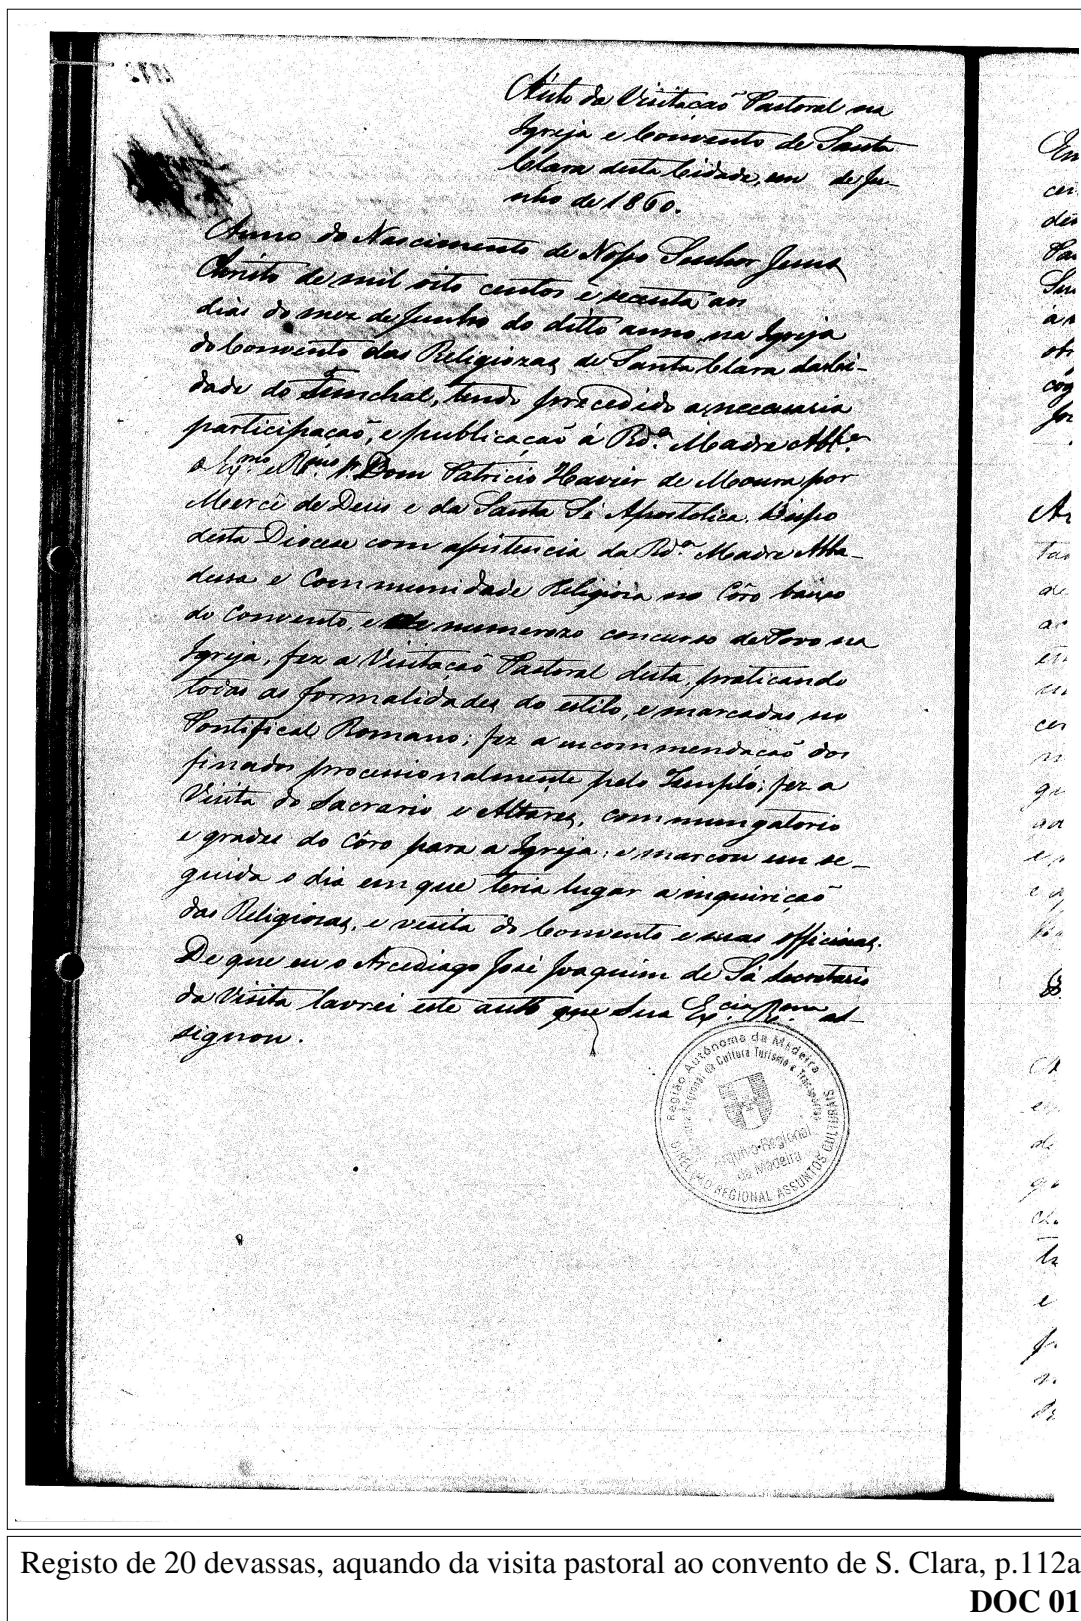 Auto da Visitacaõ Pastoral na
Igreja e Convento de Santa
Clara desta Cidade, em de Ju-
nho de 1860.
Anno do Nascimento de Nosso Senhor Jesus
Christo de mil oito centos e secenta aos
dias do mez de Junho do ditto anno, na Igreja
do Convento das Religiozas de Santa Clara da Ci-
dade do Funchal, tendo precedido a necessaria
participaçaõ, e publicaçaõ á Rd.ª Madre Abb.ª
o Ex.mo e R.mo Dom Patricio Xavier de Moura por
Mercê de Deus e da Santa Sé Apostolica. Bispo
desta Diocese com assistencia da Rd.ª Madre Abba-
dessa e Communidade Religiosa no Côro baixo
do Convento, e numerozo concurso de Povo na
Igreja, fez a Visitaçaõ Pastoral desta, praticando
todas as formalidades do estilo, e marcadas no
Pontifical Romano; fez a encommendaçaõ dos
finados processionalmente pelo Templo; fez a
Visita do Sacrario e Altares, commungatorio
e grades do Côro para a Igreja: e marcou em se-
guida o dia em que teria lugar a inquiriçaõ
das Religiosas, e visita do Convento e suas officinas.
De que eu o Arcediago José Joaquim de Sá Secretario
da Visita lavrei este auto que Sua Ex.cia Re.ma as-
signou.
Região Autónoma da Madeira
Regional da Cultura Turismo e Transportes
Arquivo Regional
da Madeira
DIRECÇÃO REGIONAL ASSUNTOS CULTURAIS
Registo de 20 devassas, aquando da visita pastoral ao convento de S. Clara, p.112a
DOC 01